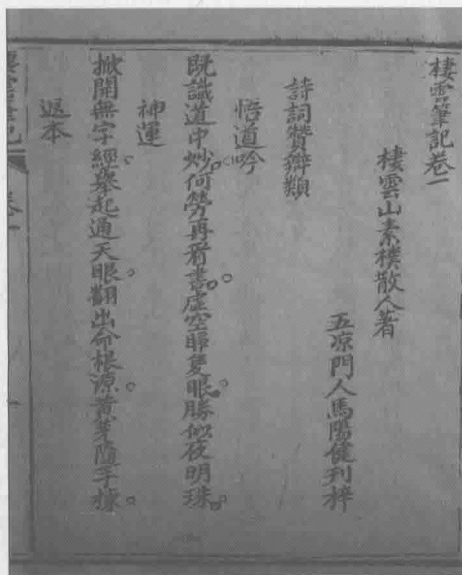 棲雲筆記卷一
棲雲山素樸散人著
五凉門人馬陽健刋梓
詩詞贊辭類
悟道吟
既識道中妙何勞再看書虛空睜隻眼勝似夜明珠
神運
掀開無字經舉起通天眼翻出命根源黃芽隨手撡
返本
棲雲筆記 卷一